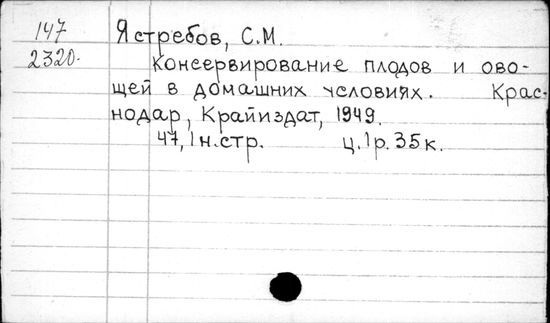 147 Ястребов, С.М.
2320. Консервирование плодов и ово-
щей в домашних условиях. Крас-
нодар, Крайиздат, 1949.
47,1н.стр. ц.1р.35к.